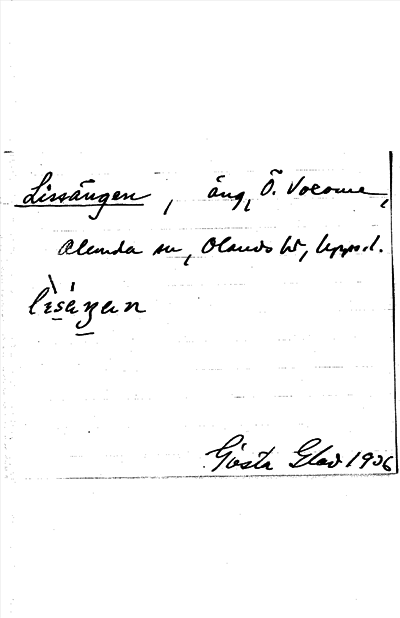 Lissängen, äng, Ö. Vocome,
Alunda sn, Olands hd, Uppsl.
Gösta Glad 1906